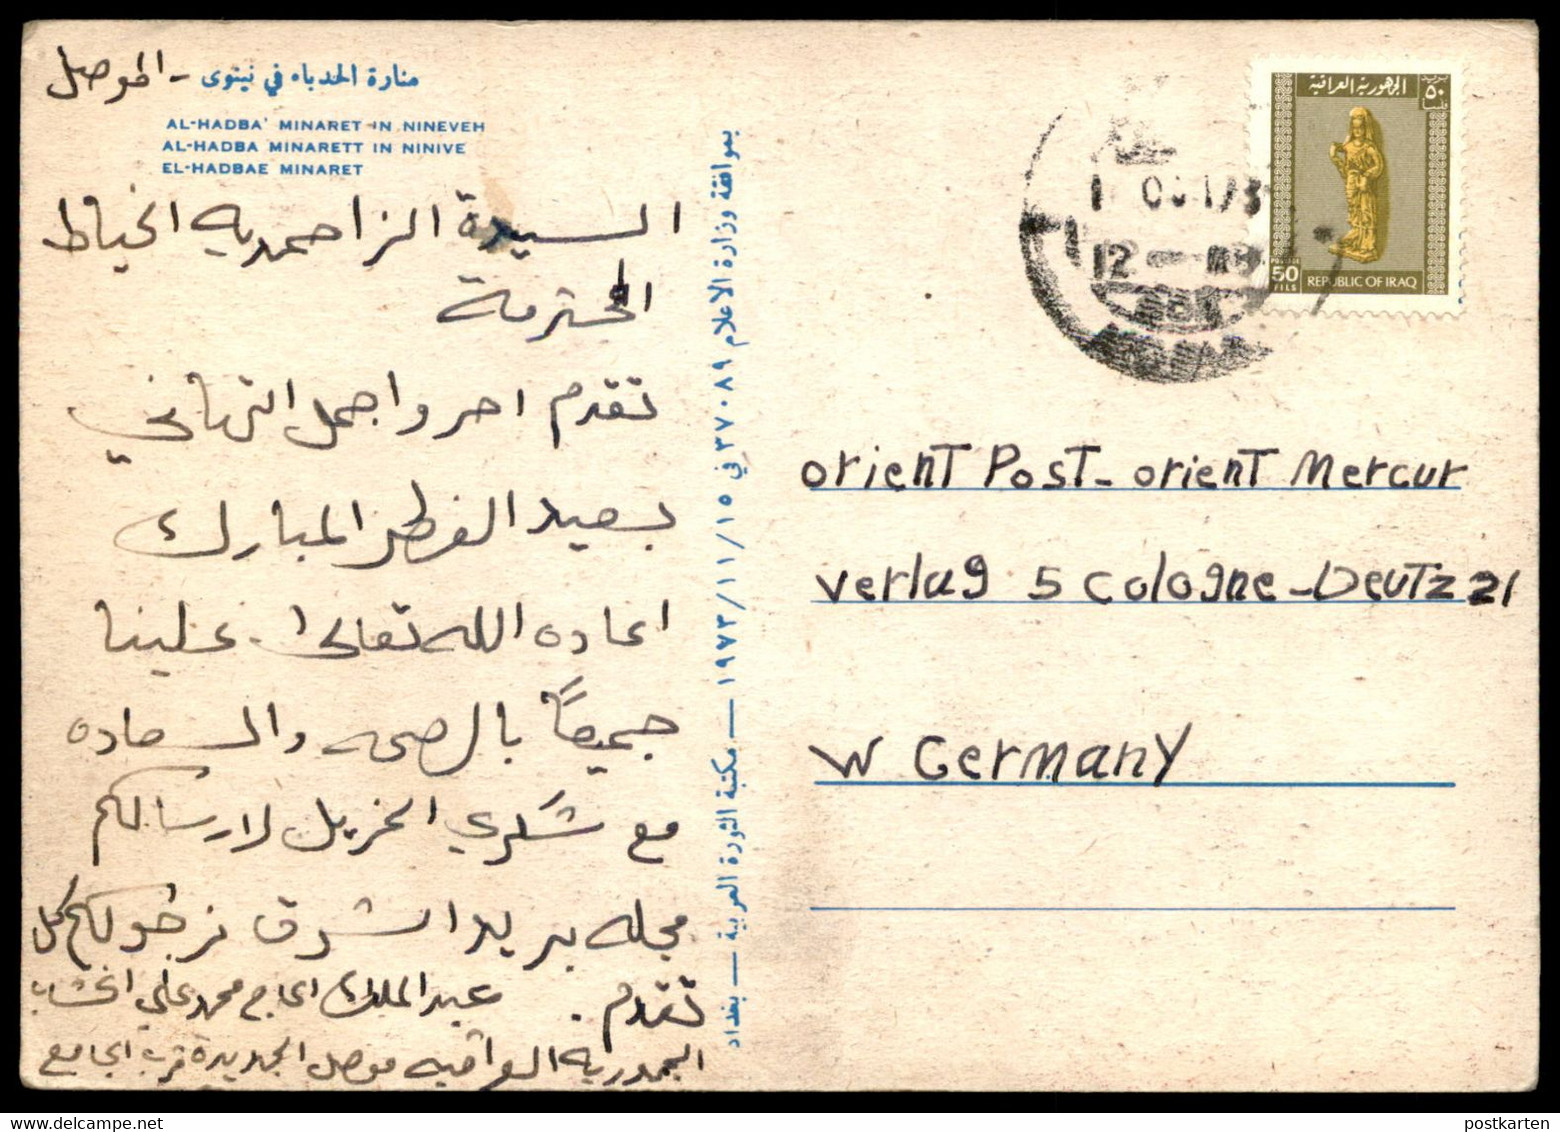 منارة الحدباء في نينوى - الموصل
AL-HADBA' MINARET IN NINEVEH
AL-HADBA MINARETT IN NINIVE
EL-HADBAE MINARET
السيدة الزا حمديه الخياط
المحترمة
تقدم احر واجمل التهاني
بعيد الفطر المبارك
اعاده الله تعالى علينا
جميعاً بالصحه والسعاده
مع شكري الجزيل لارسالكم
مجله بريد الشرق نرجو لكم كل
تقدم. عبد الملك الحاج محمد علي الخشاب
الجمهوريه العراقيه موصل الجديدة قرب الجامع
بموافقة وزارة الاعلام ٣٧٠٨٩ في ١٩٧٣/١١/١٥ — مكتبة الثورة العربية — بغداد
الجمهورية العراقية
بريد
٥٠
فلسا
POSTAGE
50
FILS
REPUBLIC OF IRAQ
12
orient Post - orient Mercur
verlag 5 cologne - Deutz 21
W Germany
postkarten